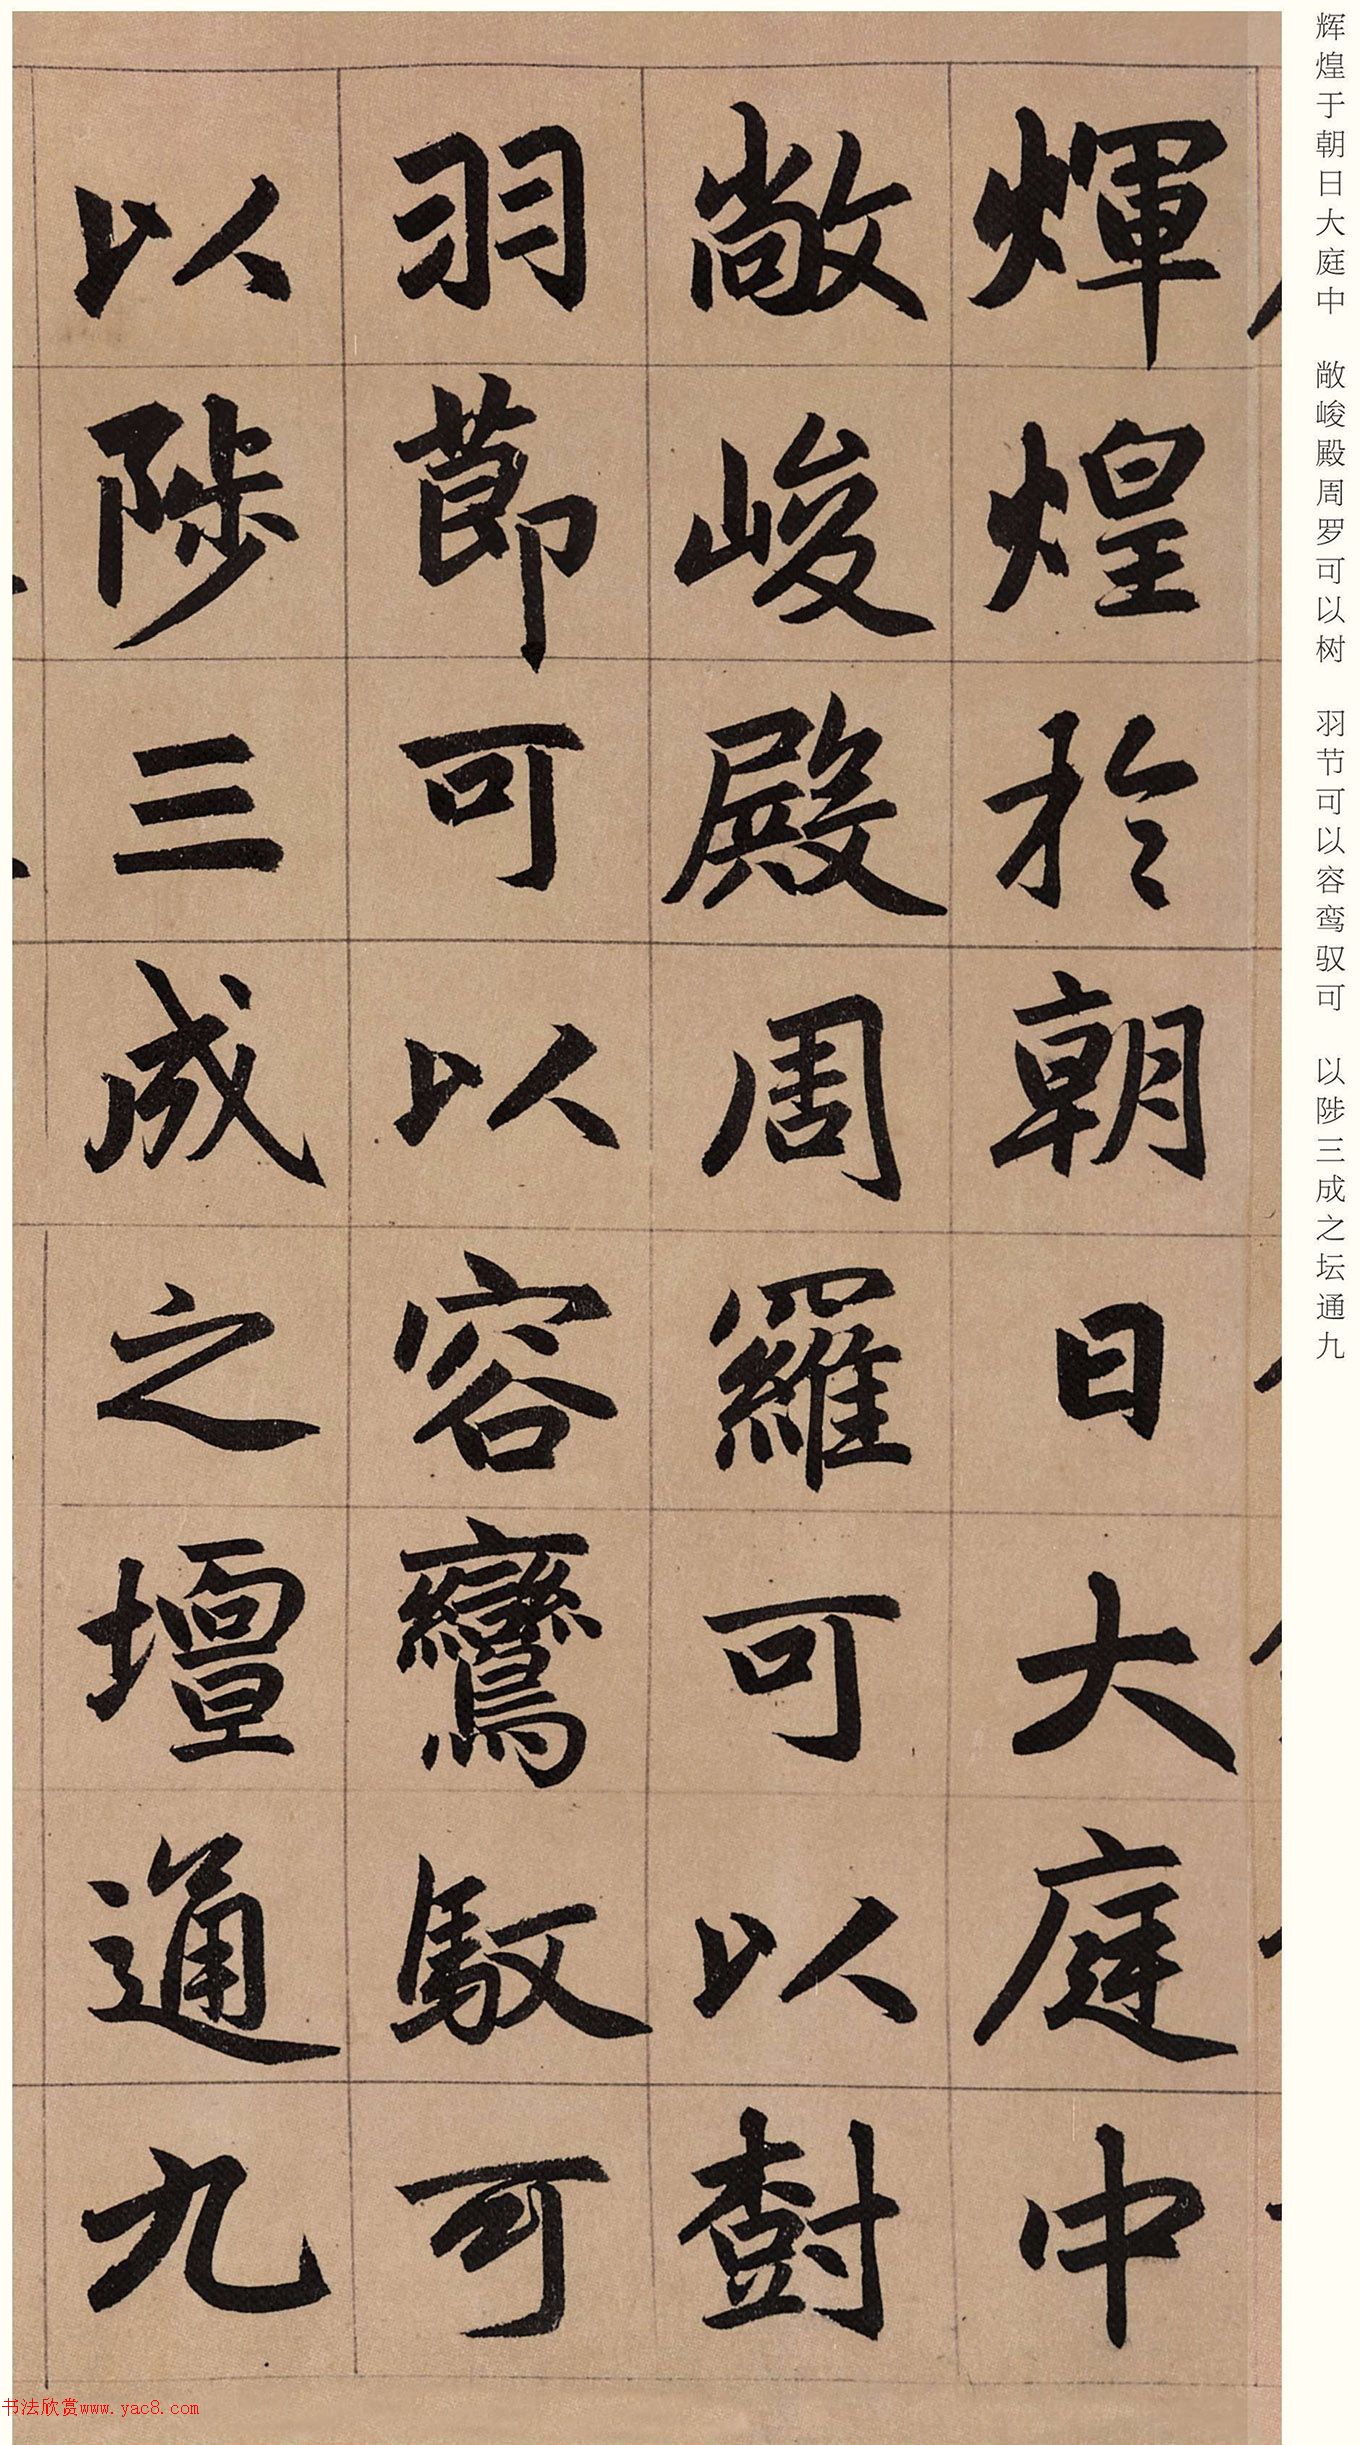 輝煌於朝日大庭中
敞峻殿周羅可以樹
羽節可以容鸞馭可
以陟三成之壇通九
辉煌于朝日大庭中 敞峻殿周罗可以树 羽节可以容鸾驭可 以陟三成之坛通九
书法欣赏www.yac8.com